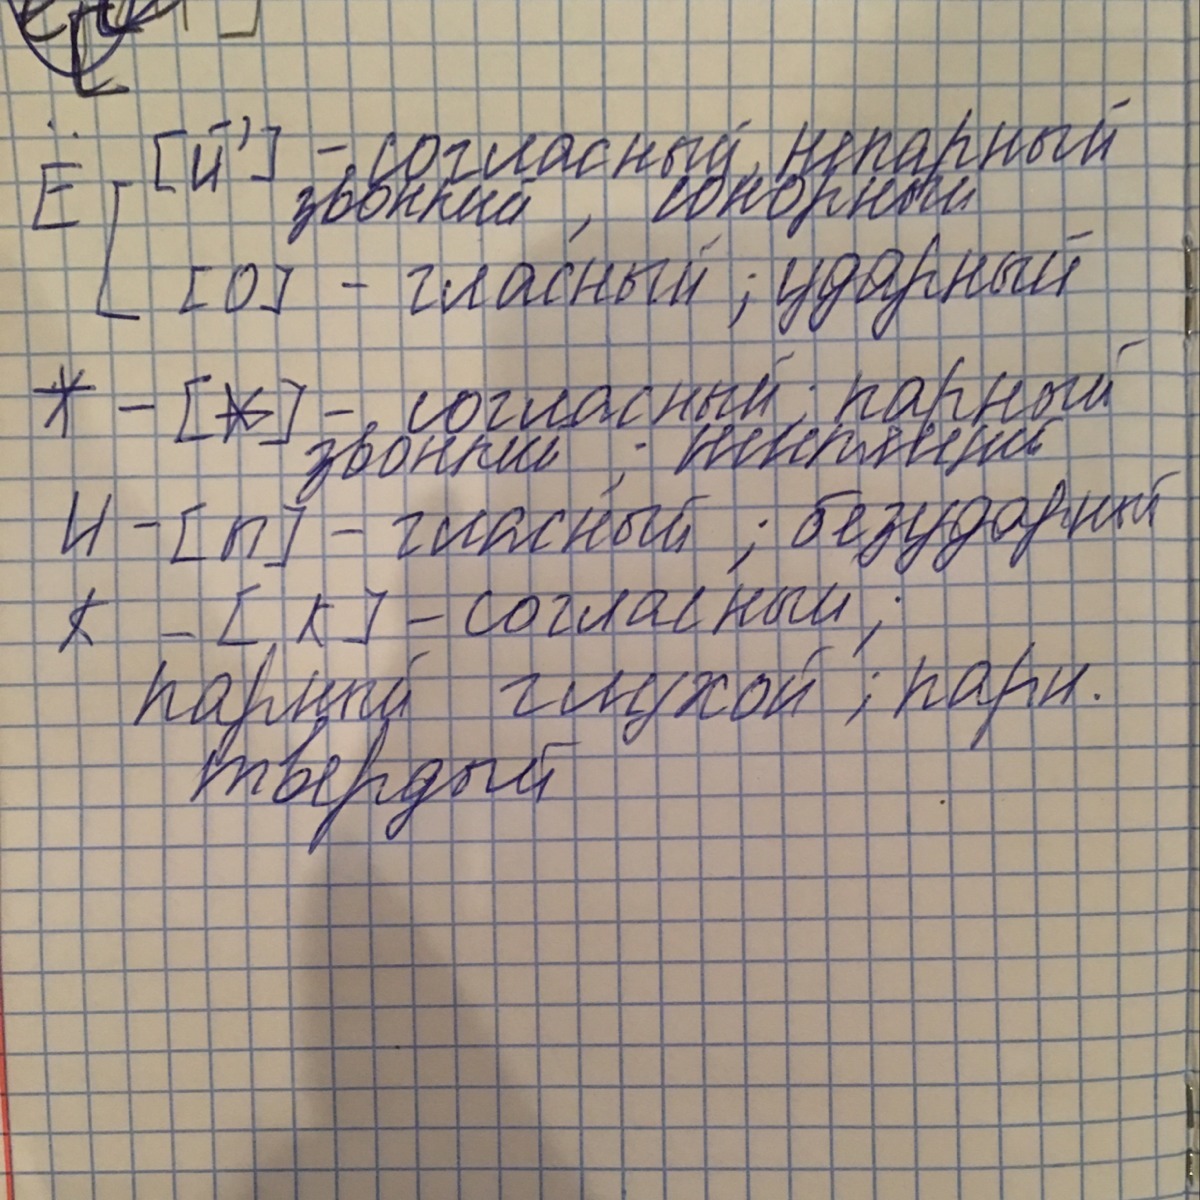 Ё [й'] - согласный, непарный
звонкий, сонорный
[о] - гласный; ударный
ж - [ж] - согласный; парный
звонкий;
И - [и] - гласный; безударный
к - [к] - согласный;
парный глухой; парн.
твердый